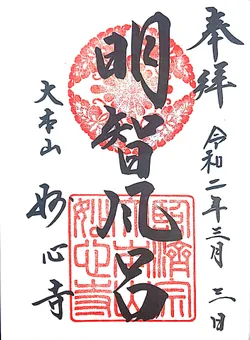 奉拝
令和二年三月三日
明智風呂
大本山
妙心寺